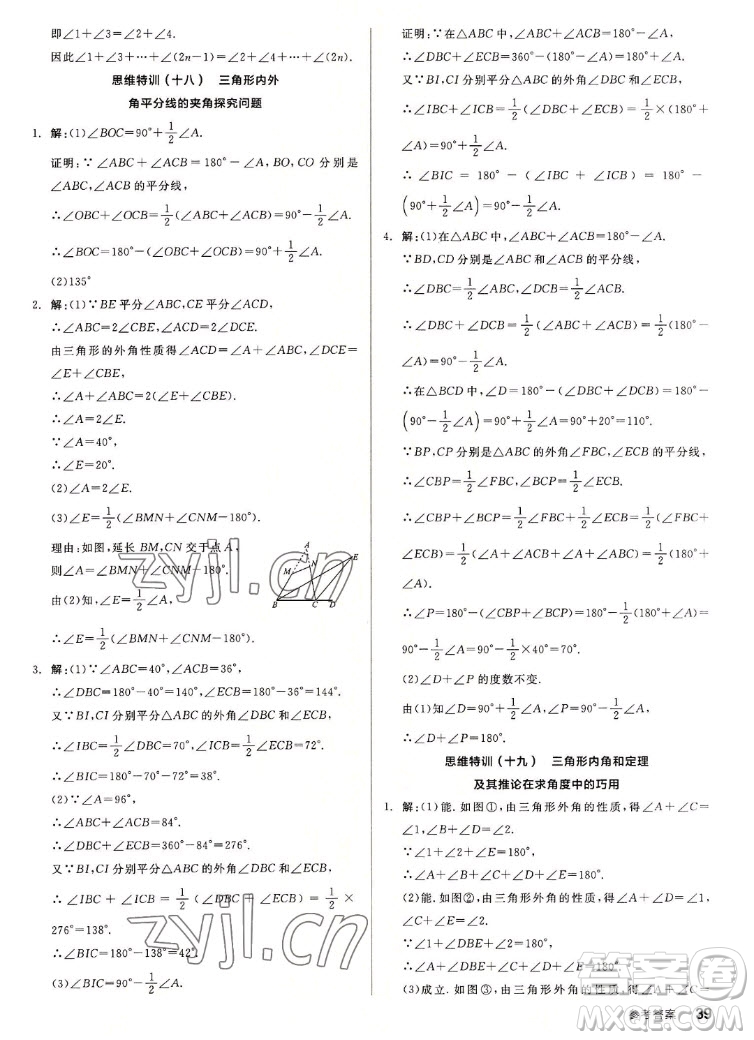 即∠1+∠3=∠2+∠4.
因此∠1+∠3+…+∠(2n-1)=∠2+∠4+…+∠(2n).
思维特训(十八) 三角形内外
角平分线的夹角探究问题
1. 解:(1)∠BOC=90°+1/2∠A.
证明:∵∠ABC+∠ACB=180°-∠A,BO,CO分别是
∠ABC,∠ACB的平分线,
∴∠OBC+∠OCB=1/2(∠ABC+∠ACB)=90°-1/2∠A,
∴∠BOC=180°-(∠OBC+∠OCB)=90°+1/2∠A.
(2)135°
2. 解:(1)∵BE平分∠ABC,CE平分∠ACD,
∴∠ABC=2∠CBE,∠ACD=2∠DCE.
由三角形的外角性质得∠ACD=∠A+∠ABC,∠DCE=
∠E+∠CBE,
∴∠A+∠ABC=2(∠E+∠CBE),
∴∠A=2∠E.
∵∠A=40°,
∴∠E=20°.
(2)∠A=2∠E.
(3)∠E=1/2(∠BMN+∠CNM-180°).
理由:如图,延长BM,CN交于点A,
则∠A=∠BMN+∠CNM-180°.
由(2)知,∠E=1/2∠A,
∴∠E=1/2(∠BMN+∠CNM-180°).
A
M
N
E
B
C
D
3. 解:(1)∵∠ABC=40°,∠ACB=36°,
∴∠DBC=180°-40°=140°,∠ECB=180°-36°=144°.
又∵BI,CI分别平分△ABC的外角∠DBC和∠ECB,
∴∠IBC=1/2∠DBC=70°,∠ICB=1/2∠ECB=72°,
∴∠BIC=180°-∠IBC-∠ICB=38°.
(2)∵∠A=96°,
∴∠ABC+∠ACB=180°-96°=84°,
∴∠DBC+∠ECB=360°-84°=276°.
又∵BI,CI分别平分△ABC的外角∠DBC和∠ECB,
∴∠IBC+∠ICB=1/2(∠DBC+∠ECB)=1/2×
276°=138°.
∴∠BIC=180°-138°=42°.
(3)∠BIC=90°-1/2∠A.
证明:在△ABC中,∠ABC+∠ACB=180°-∠A,
∴∠DBC+∠ECB=360°-(180°-∠A)=180°+∠A.
又∵BI,CI分别平分△ABC的外角∠DBC和∠ECB,
∴∠IBC+∠ICB=1/2(∠DBC+∠ECB)=1/2(180°+
∠A)=90°+1/2∠A.
∴∠BIC=180°-(∠IBC+∠ICB)=180°-
(90°+1/2∠A)=90°-1/2∠A.
4. 解:(1)在△ABC中,∠ABC+∠ACB=180°-∠A.
∵BD,CD分别为∠ABC,∠ACB的平分线,
∴∠DBC=1/2∠ABC,∠DCB=1/2∠ACB,
∴∠DBC+∠DCB=1/2(∠ABC+∠ACB)=1/2(180°-
∠A)=90°-1/2∠A.
∴在△BCD中,∠D=180°-(∠DBC+∠DCB)=180°-
(90°-1/2∠A)=90°+1/2∠A=90°+20°=110°.
∵BP,CP分别为外角∠FBC,∠ECB的平分线,
∴∠CBP=1/2∠FBC,∠BCP=1/2∠ECB,
∴∠CBP+∠BCP=1/2∠FBC+1/2∠ECB=1/2(∠FBC+
∠ECB)=1/2(180°-∠ABC+180°-∠ACB)=1/2(180°+
∠A).
∴∠P=180°-(∠CBP+∠BCP)=180°-1/2(180°+∠A)=
90°-1/2∠A=90°-20°=70°.
(2)∠D+∠P的度数不变.
由(1)知∠D=90°+1/2∠A,∠P=90°-1/2∠A,
∴∠D+∠P=180°.
思维特训(十九) 三角形内角和定理
及其推论在求角度中的巧用
1. 解:(1)能.如图①,由三角形外角的性质,得∠A+∠C=
∠1,∠B+∠D=∠2.
∵∠1+∠2+∠E=180°,
∴∠A+∠B+∠C+∠D+∠E=180°.
(2)能.如图②,由三角形外角的性质,得∠A+∠D=∠1,
∠C+∠E=∠2.
∵∠1+∠DBE+∠2=180°,
∴∠A+∠DBE+∠C+∠D+∠E=180°.
(3)成立.如图③,由三角形外角的性质,得∠A+∠C=
参考答案 39
zyjl.cn
zyjl.cn
答案卷
MXQE.COM